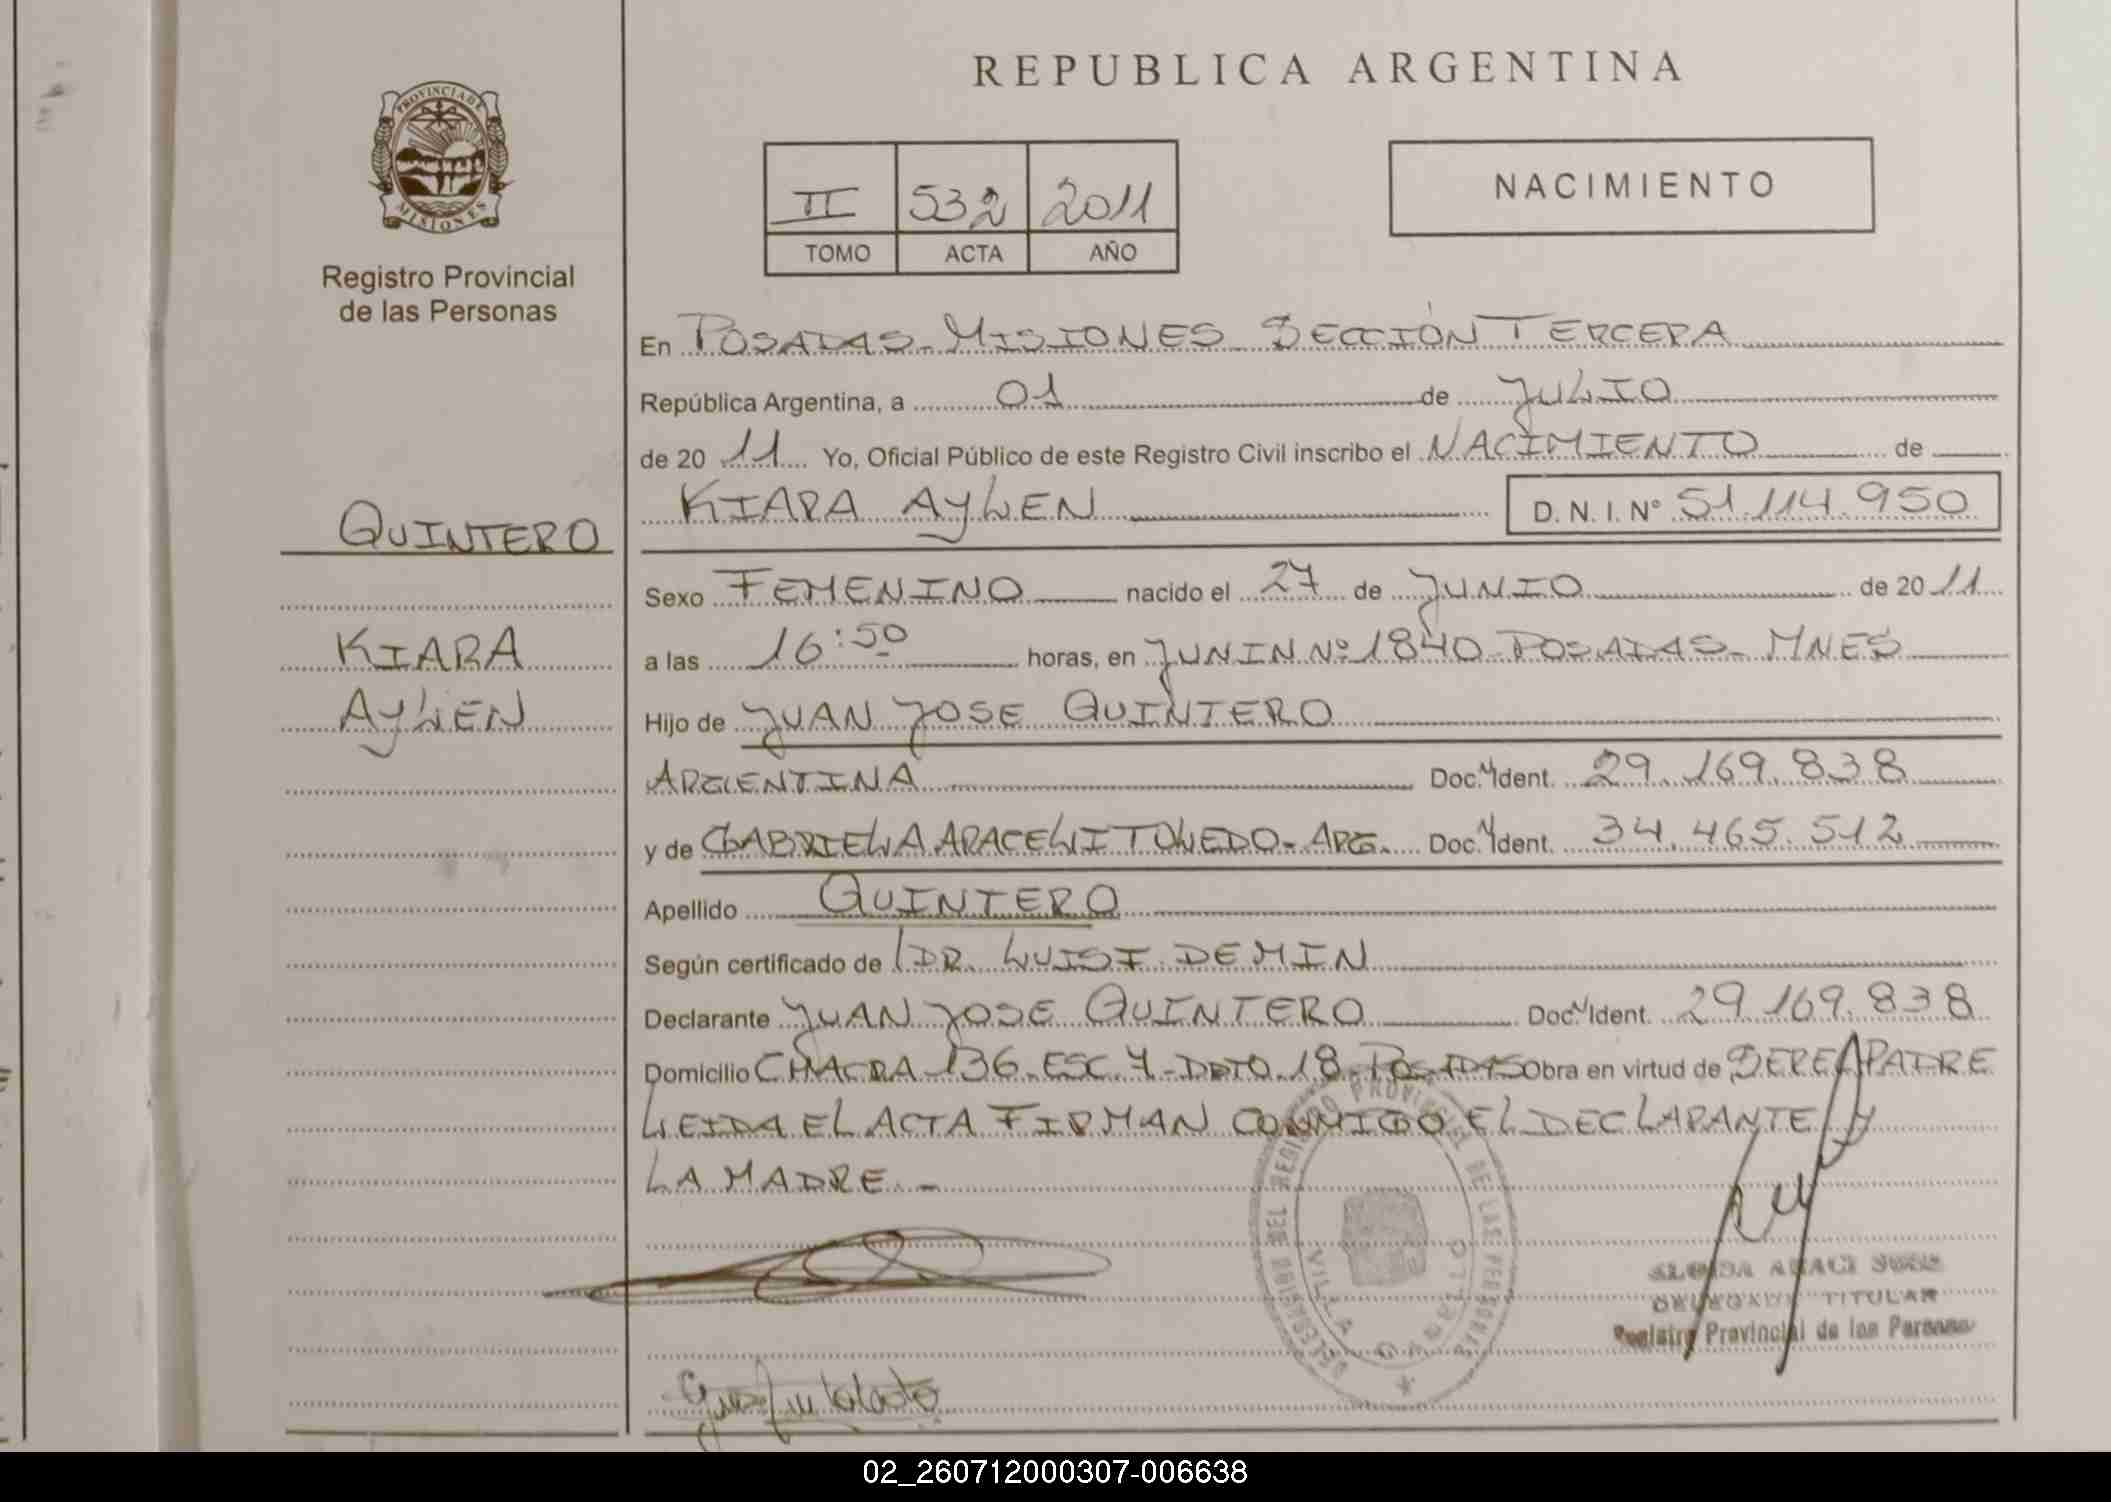 PROVINCIA DE
MISIONES
Registro Provincial
de las Personas
QUINTERO
KIARA
AYLEN
REPUBLICA ARGENTINA
II 532 2011
TOMO ACTA AÑO
NACIMIENTO
En POSADAS-MISIONES SECCIÓN TERCERA
República Argentina, a 01 de JULIO
de 20 11 Yo, Oficial Público de este Registro Civil inscribo el NACIMIENTO de
KIARA AYLEN D. N. I. N° 51.114.950
Sexo FEMENINO nacido el 27 de JUNIO de 20 11
a las 16:50 horas, en JUNIN Nº 1840 POSADAS-MNES
Hijo de JUAN JOSE QUINTERO
ARGENTINA Doc. Ident. 29.169.838
y de GABRIELA ARACELI TOLEDO-ARG. Doc. Ident. 34.465.512
Apellido QUINTERO
Según certificado de DR. LUIS F. DEMIN
Declarante JUAN JOSE QUINTERO Doc. Ident. 29.169.838
Domicilio CHACRA 136-ESC.7-DPTO.18-POSADAS Obra en virtud de SER EL PADRE
LEIDA EL ACTA FIRMAN CONMIGO EL DECLARANTE Y
LA MADRE.-
REGISTRO PROVINCIAL DE LAS PERSONAS
VILLA
TITULAR
Registro Provincial de las Personas
02_260712000307-006638